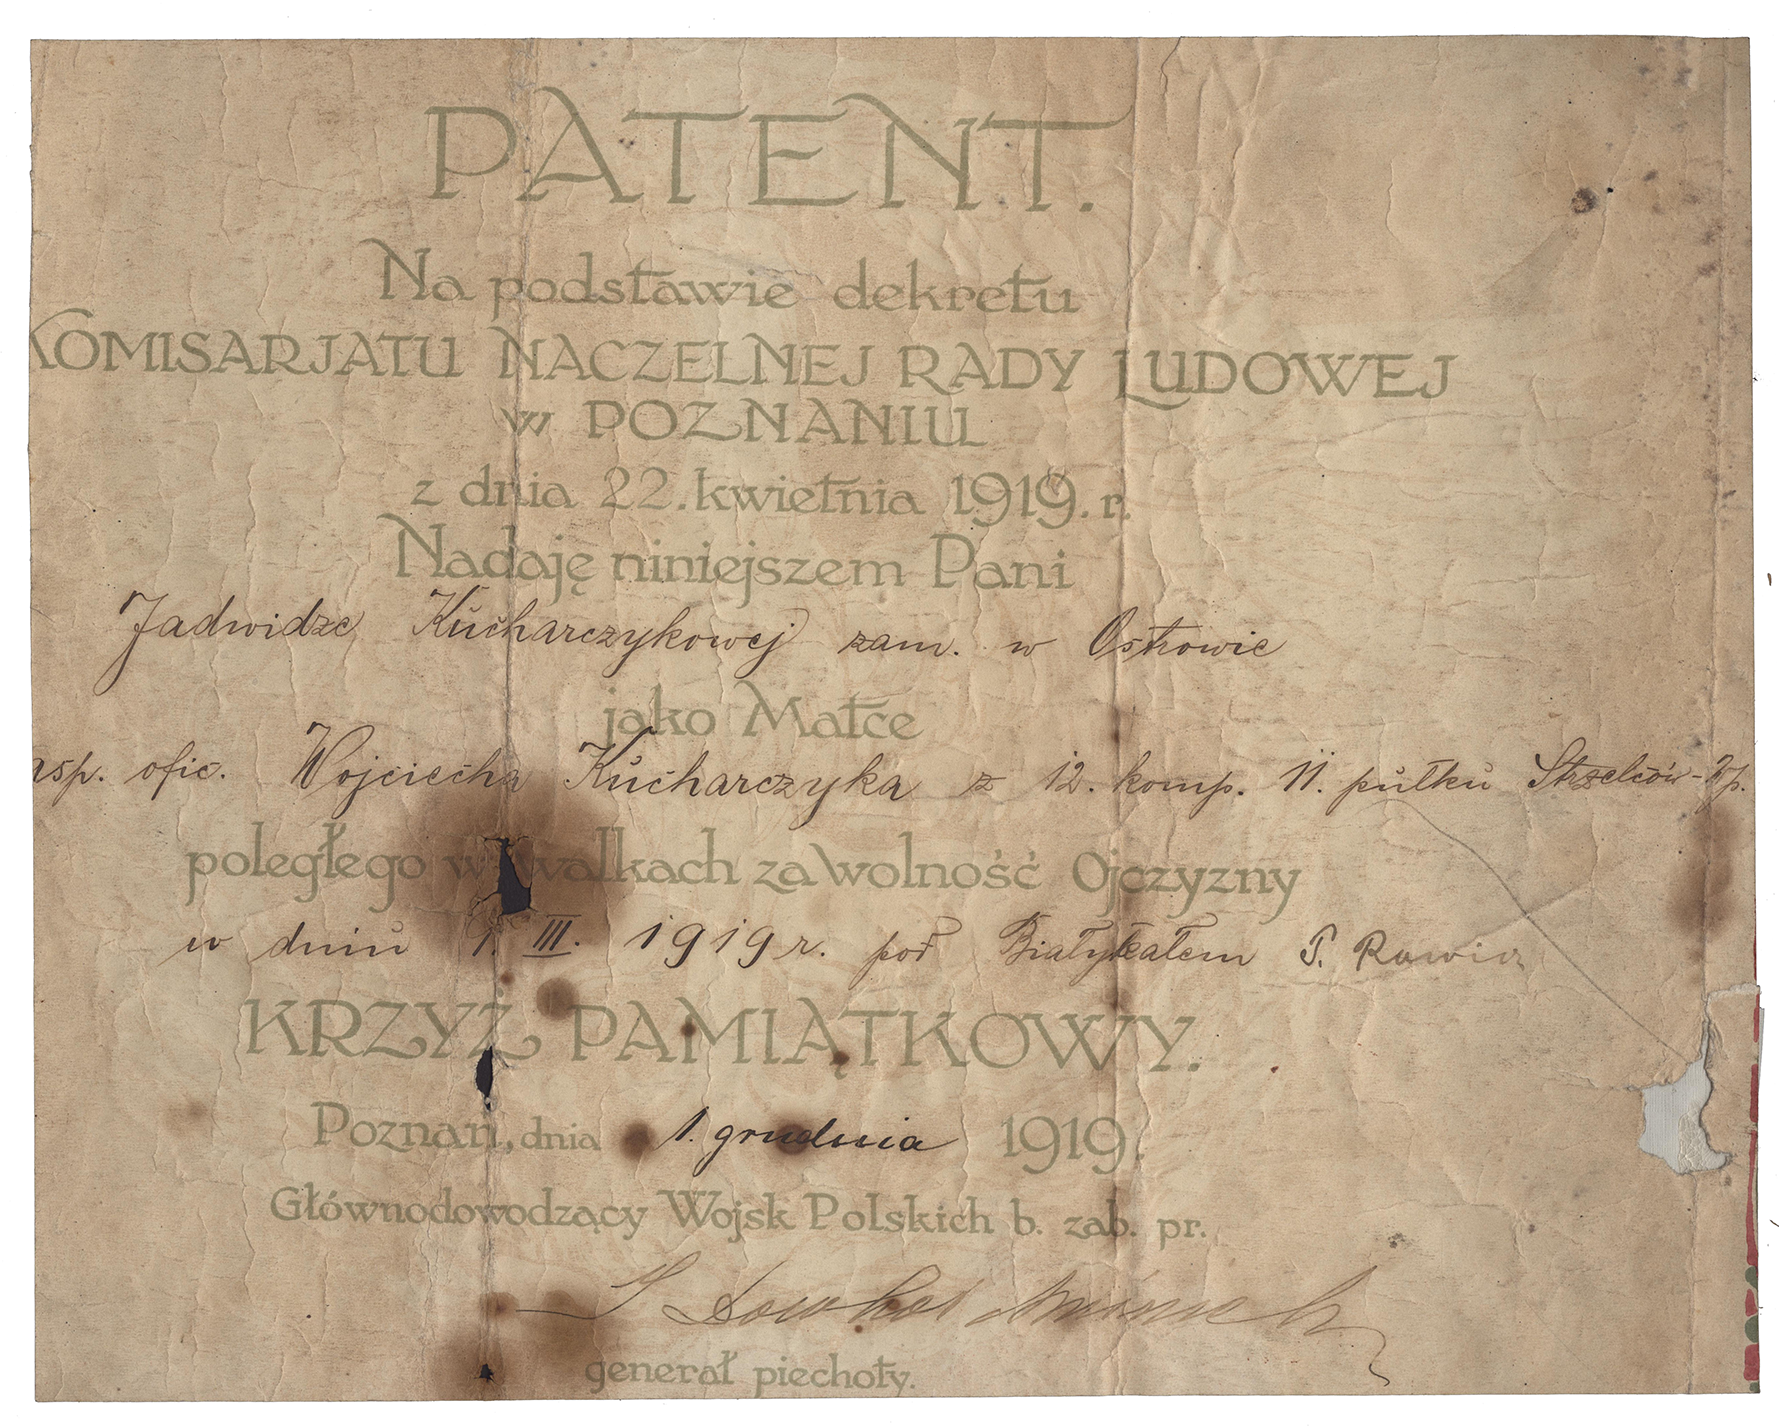 PATENT.
Na podstawie dekretu
KOMISARJATU NACZELNEJ RADY LUDOWEJ
w POZNANIU
z dnia 22. kwietnia 1919. r.
Nadaję niniejszem Pani
Jadwidze Kucharczykowej zam. w Ostrowie
jako Matce
asp. ofic. Wojciecha Kucharczyka z 12. komp. 11. pułku Strzelców-
poległego w walkach za wolność Ojczyzny
w dniu 1. III. 1919 r. pod Białykałem P. Rawicz
KRZYŻ PAMIĄTKOWY.
Poznań, dnia 1. grudnia 1919.
Głównodowodzący Wojsk Polskich b. zab. pr.
J Dowbor Muśnicki
generał piechoty.